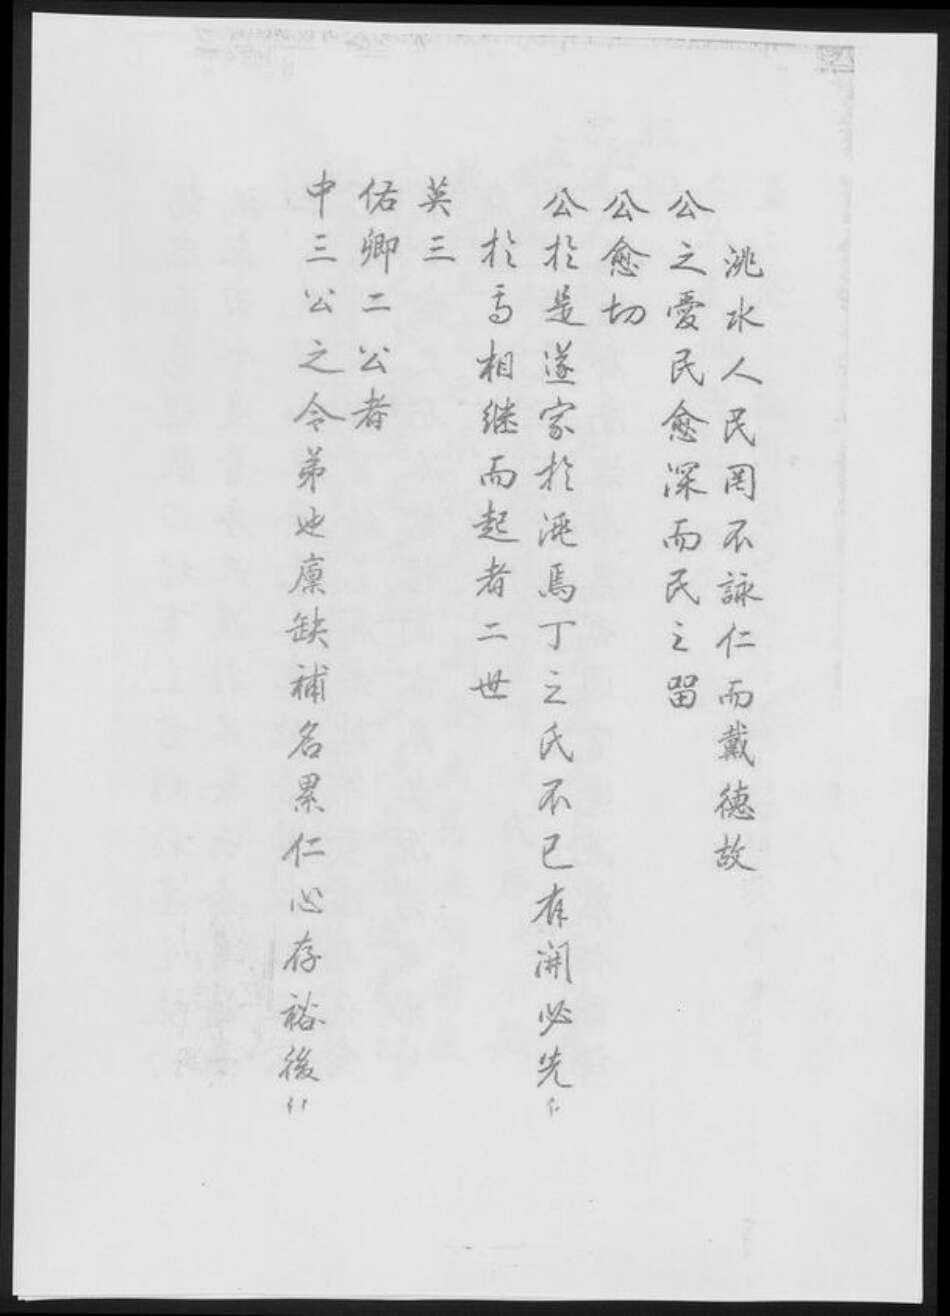 洮水人民罔不詠仁而戴德故
公之愛民愈深而民之留
公愈切
公於是遂家於洮焉丁之氏不已有開必先
於焉相继而起者二世
英三
佑卿二公者
中三公之令弟也廪缺補名累仁心存裕後